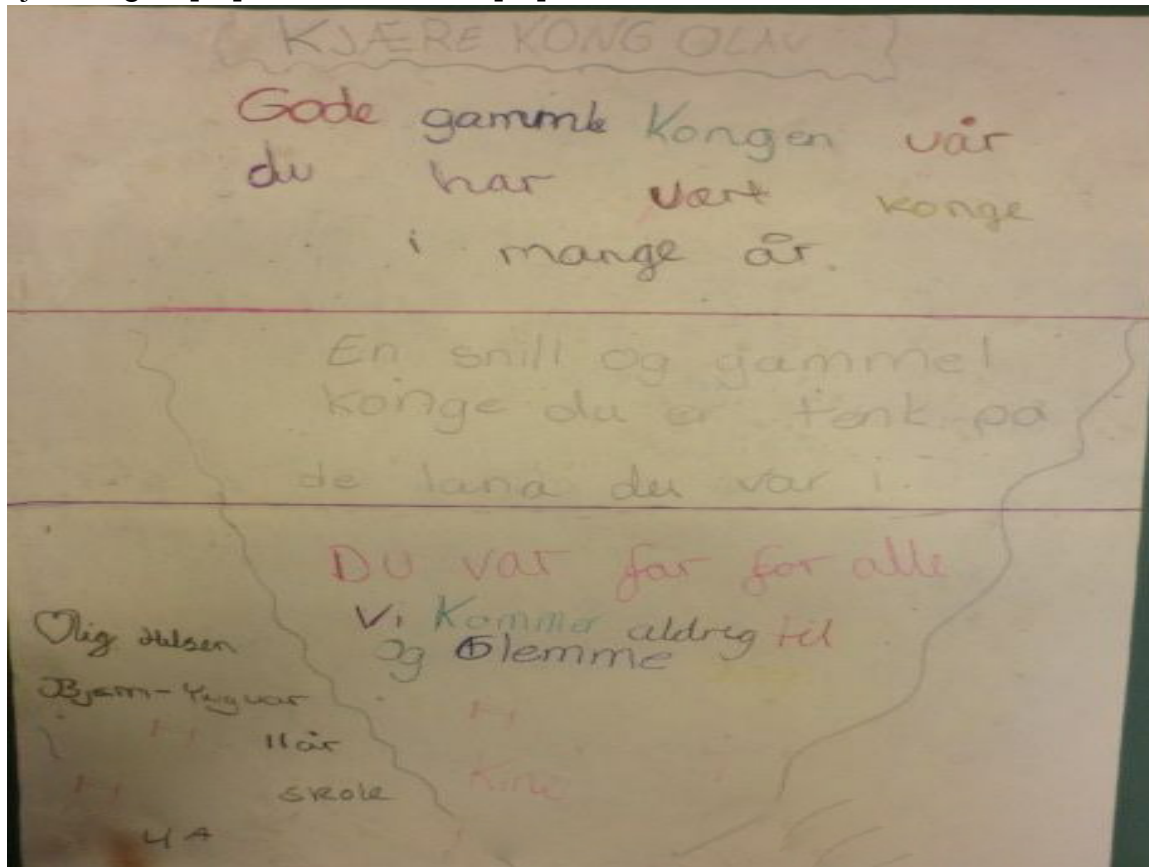 KJÆRE KONG OLAV
Gode gammle Kongen vår
du har vært konge
i mange år.
En snill og gammel
konge du er tenk på
de land du var i.
DU var far for alle
Vi Kommer aldreg til
Og Glemme
Hilsen
11 år
Kine
skole
4A